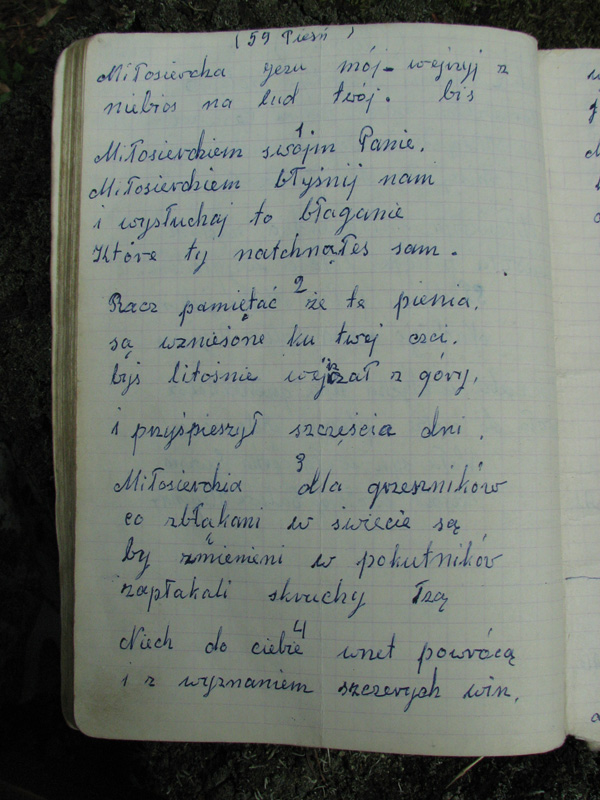 ( 59 Pieśń )
Miłosierdza jezu mój - wejrzyj z
niebios na lud twój. bis
1
Miłosierdziem swojim Panie.
Miłosierdziem błyśnij nam
i wysłuchaj to błaganie
Które ty natchnąłeś sam.
2
Racz pamiętać że te pienia.
są wznieśone ku twej czci.
byś litośnie wejrzał z góry.
i przyśpieszył szczęścia dni.
3
Miłosierdzia dla grzeszników
co zbłąkani w świecie są
by zmienieni w pokutników
zapłakali skruchy łzą
4
Niech do ciebie wnet powrócą
i z wyznaniem szczerych win.